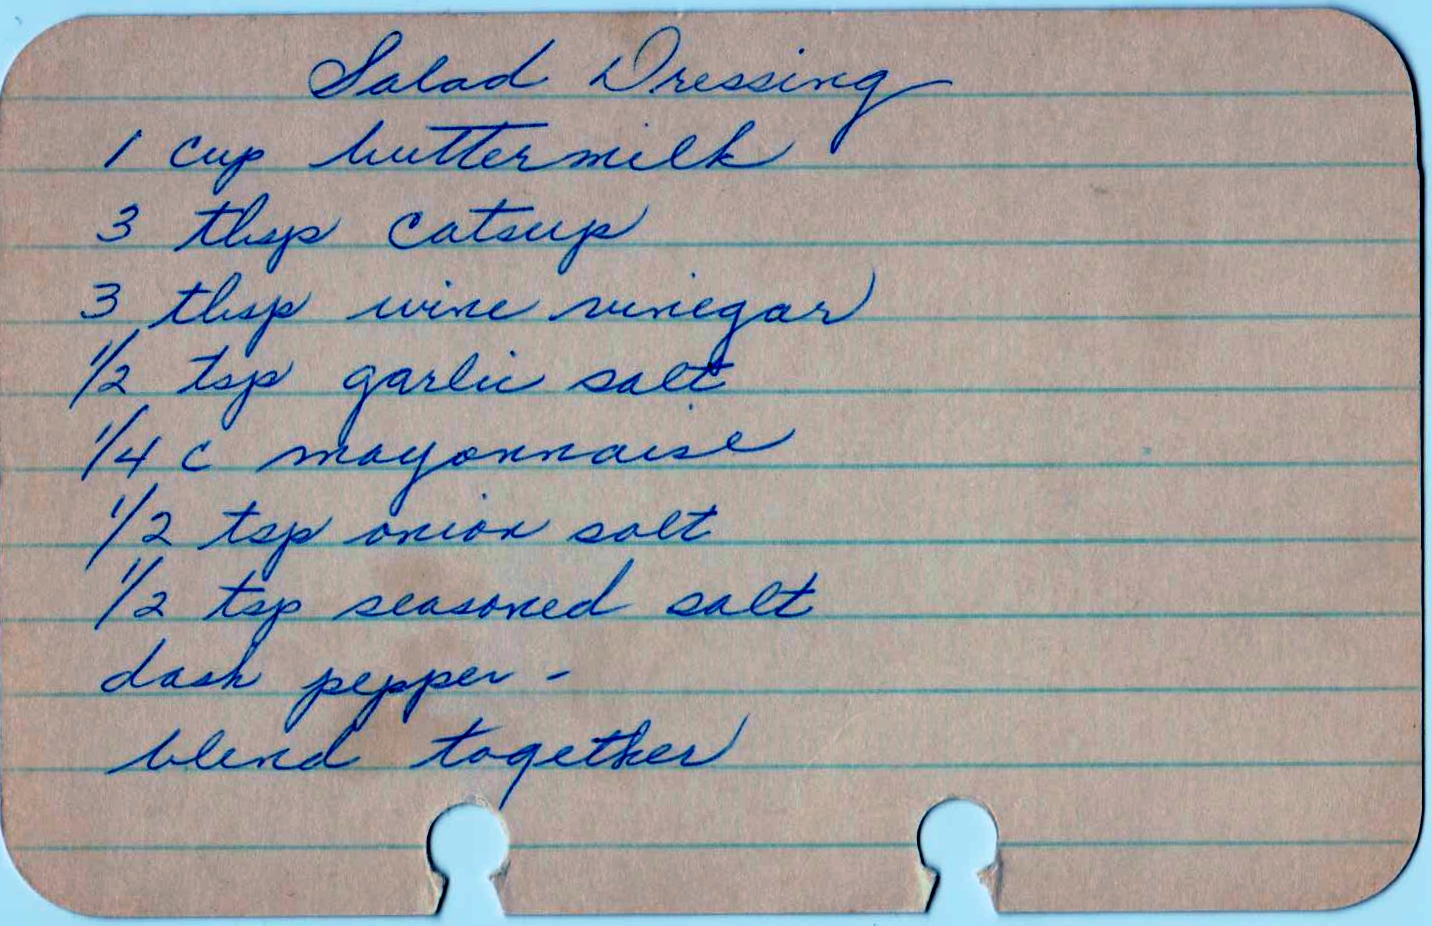 Salad Dressing
1 cup buttermilk
3 tbsp catsup
3 tbsp wine vinegar
1/2 tsp garlic salt
1/4 c mayonnaise
1/2 tsp onion salt
1/2 tsp seasoned salt
dash pepper -
blend together